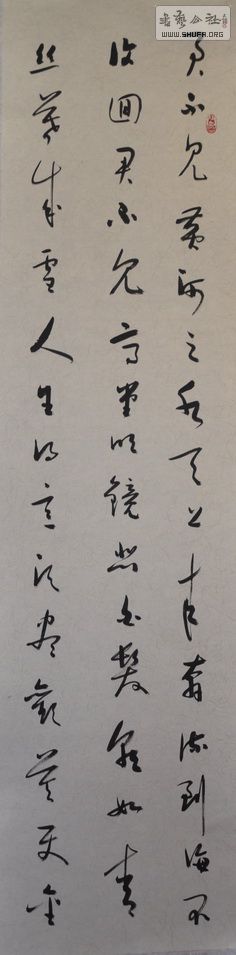 書藝公社
WWW.SHUFA.ORG
君不見黃河之水天上來奔流到海不
復回君不見高堂明鏡悲白髮朝如青
絲暮成雪人生得意須盡歡莫使金